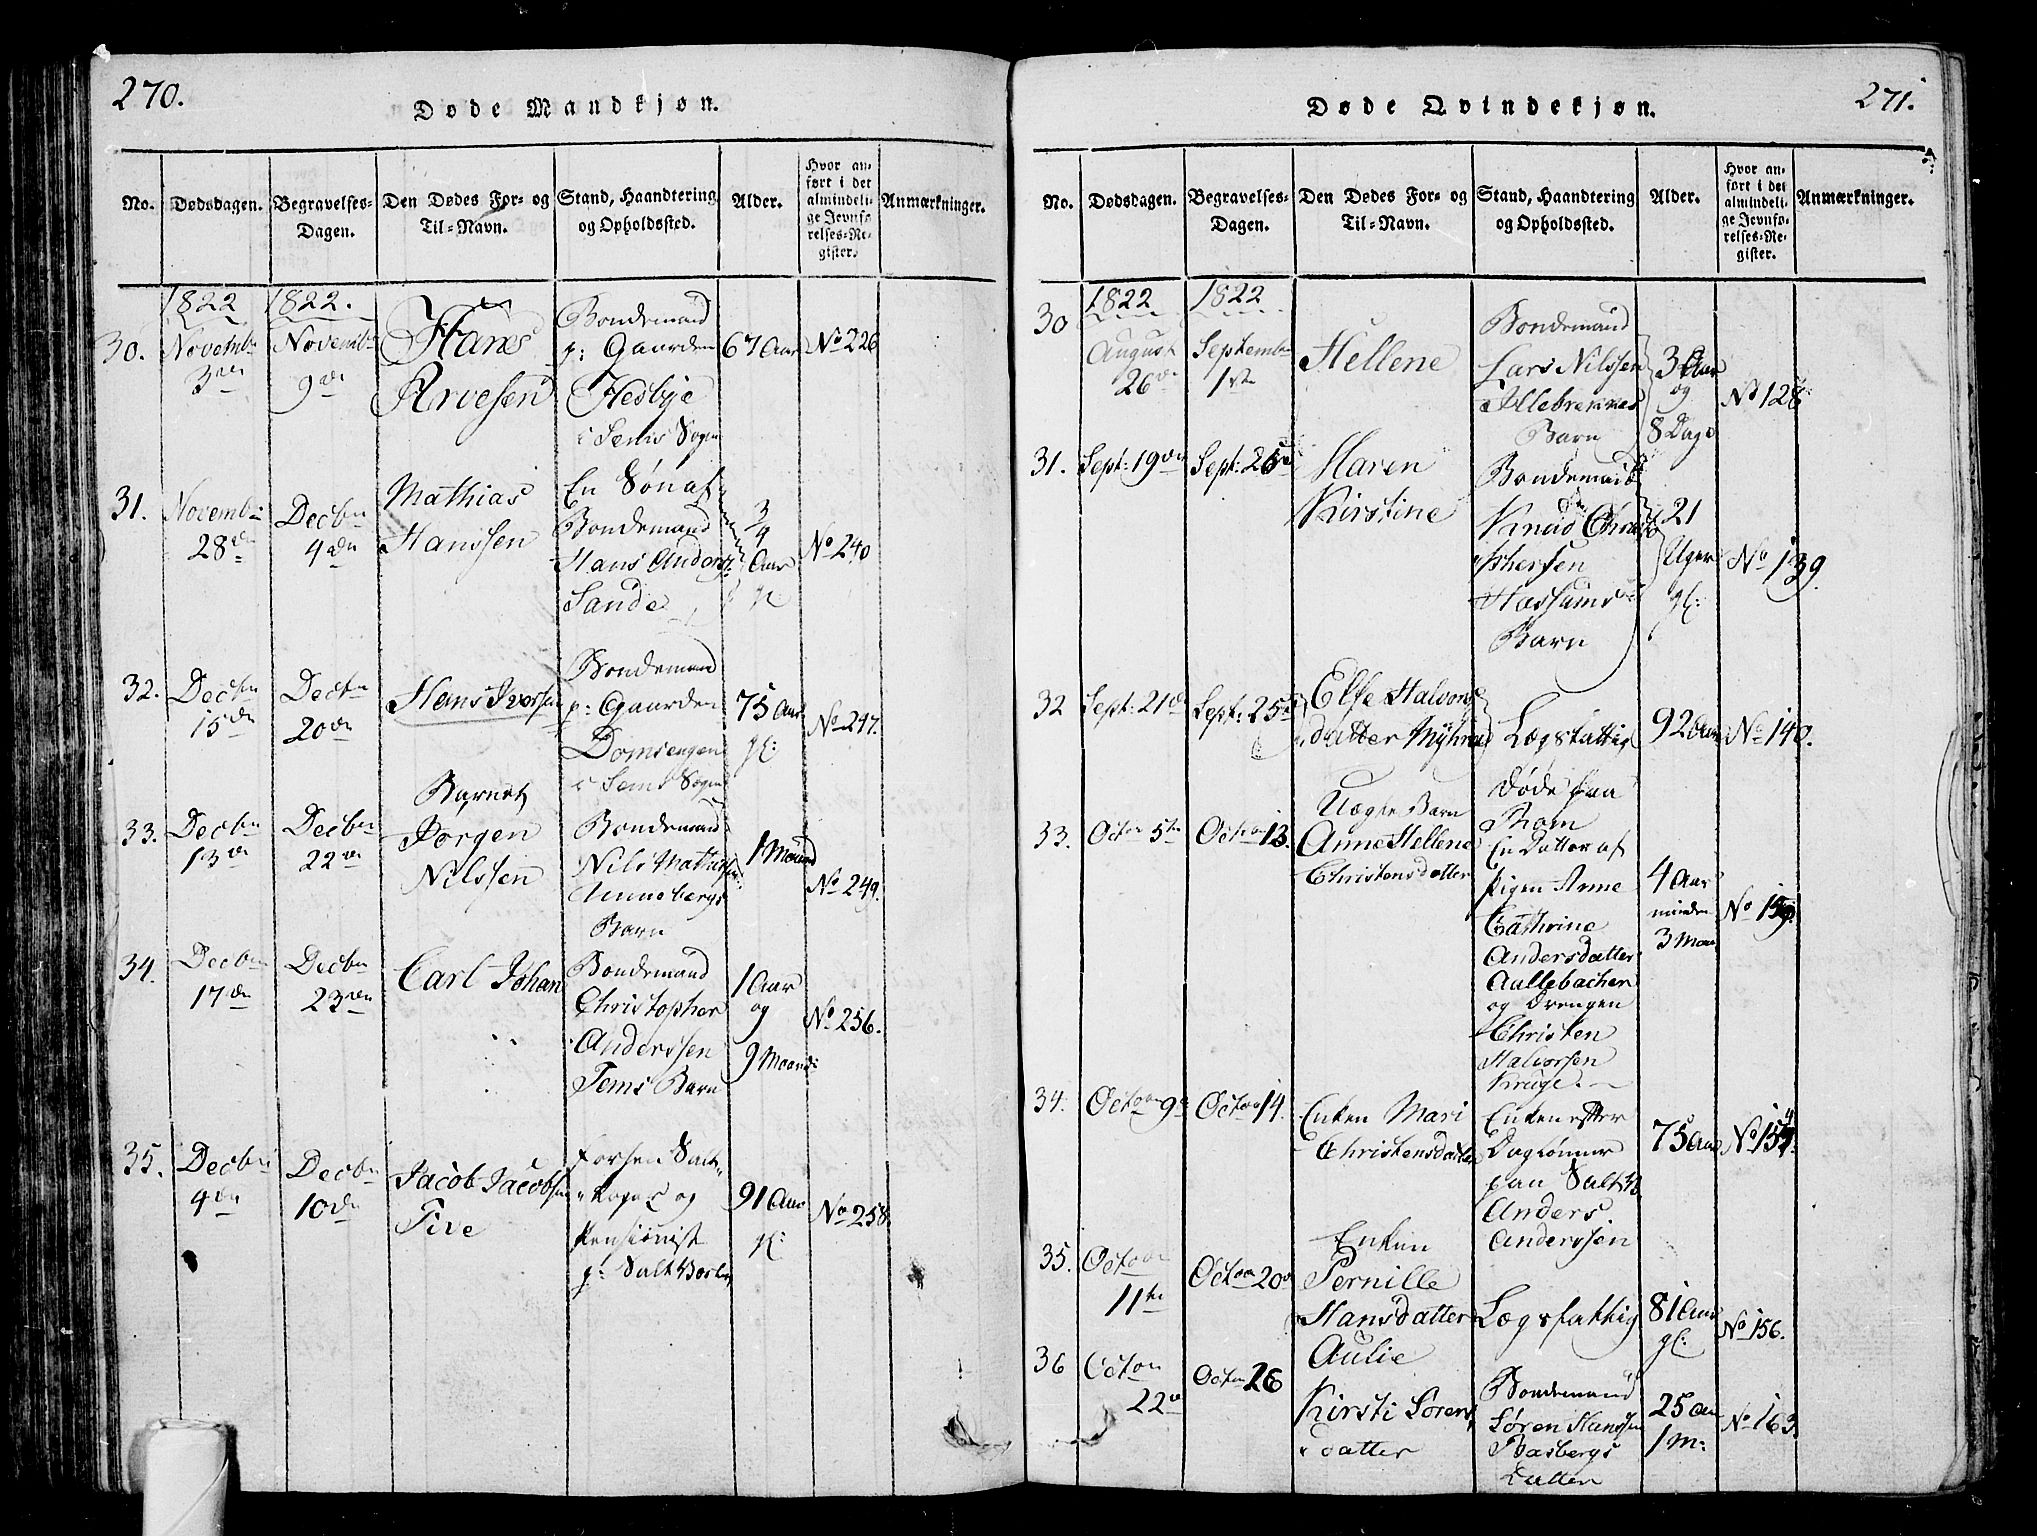 270.
Døde Mandkjøn.
No.
Dødsdagen.
Begravelses-
Dagen.
Den Dødes For- og
Til-Navn.
Stand, Haandtering
og Opholdssted.
Alder.
Hvor an-
ført i det
almindeli-
ge Jevnfø-
relses-Re-
gister.
Anmærkninger.
1822
1822.
30.
Novembr
3die
Novembr
9de
Hans
Arvesen
Bondemand
p: Gaarden
Hesbye
i Sems Sogn
67 Aar
No 226
31.
Novembr
28de
Decbr
4de
Mathias
Hanssen
En Søn af
Bondemand
Hans Anders:
Sande
3/4
Aar
gl:
No 240
32.
Decbr
15de
Decbr
20de
Hans Iversen
Bondemand
p: Gaarden
Domsengen
i Sems Sogn
75 Aar
gl:
No 247.
33.
Decbr
13de
Decbr
22de
Barnet
Jørgen
Nilssen
Bondemand
Nils Mathissen
Unnebergs
Barn
1 Maaned
No 249.
34.
Decbr
17de
Decbr
23de
Carl Johan
Bondemand
Christopher
Anderssen
Tems Barn
1 Aar
og
9 Maan:
No 256.
35.
Decbr
4de
Decbr
10de
Jacob Jacobsen
Five
forhen Salt-
og
Pensionist
p: Salt
91 Aar
gl:
No 258.
271.
Døde Qvindekjøn.
No.
Dødsdagen.
Begravelses-
Dagen.
Den Dødes For- og
Til-Navn.
Stand, Haandtering
og Opholdssted.
Alder.
Hvor an-
ført i det
almindeli-
ge Jevnfø-
relses-Re-
gister.
Anmærkninger.
1822
1822
30
August
26de
September
1ste
Hellene
Bondemand
Lars Nilssen
Illebrekkes
Barn
3 Aar
og
8 Dage
No 128
31.
Sept: 19de
Sept:
Maren
Kirstine
Bondemand
Knud Chri-
sthersen
Hassums
Barn
21
Uger
gl:
No 139.
32
Sept: 21de
Sept: 25de
Elsse Halvors
datter Myhre
Lægsfattig
92 Aar
No 140.
33.
Octbr 5te
Octbr 13.
Uægte Barn
Anne Hellene
Christensdatter
Døde paa
Rom
En Datter af
Pigen Anne
Cathrine
Andersdatter
Aullebachen
og Drengen
Christen
Halvorsen
Kruge.
4 Aar
minder
3 Maan
No
34.
Octbr 9de
Octbr 14.
Enken Mari
Christensdatter
Enken efter
Daglønner
paa Salt
Anders
Anderssen
75 Aar
No
35.
Octbr
11te
Octbr 20de
Enken
Pernille
Hansdatter
Aulie
Lægsfattig
81 Aar
gl:
No 156.
36
Octbr
22de
Octbr 26
Kirsti Sørens
datter
Bondemand
Søren Hanssen
Basbergs
Datter
25 Aar
1 M:
No 163.